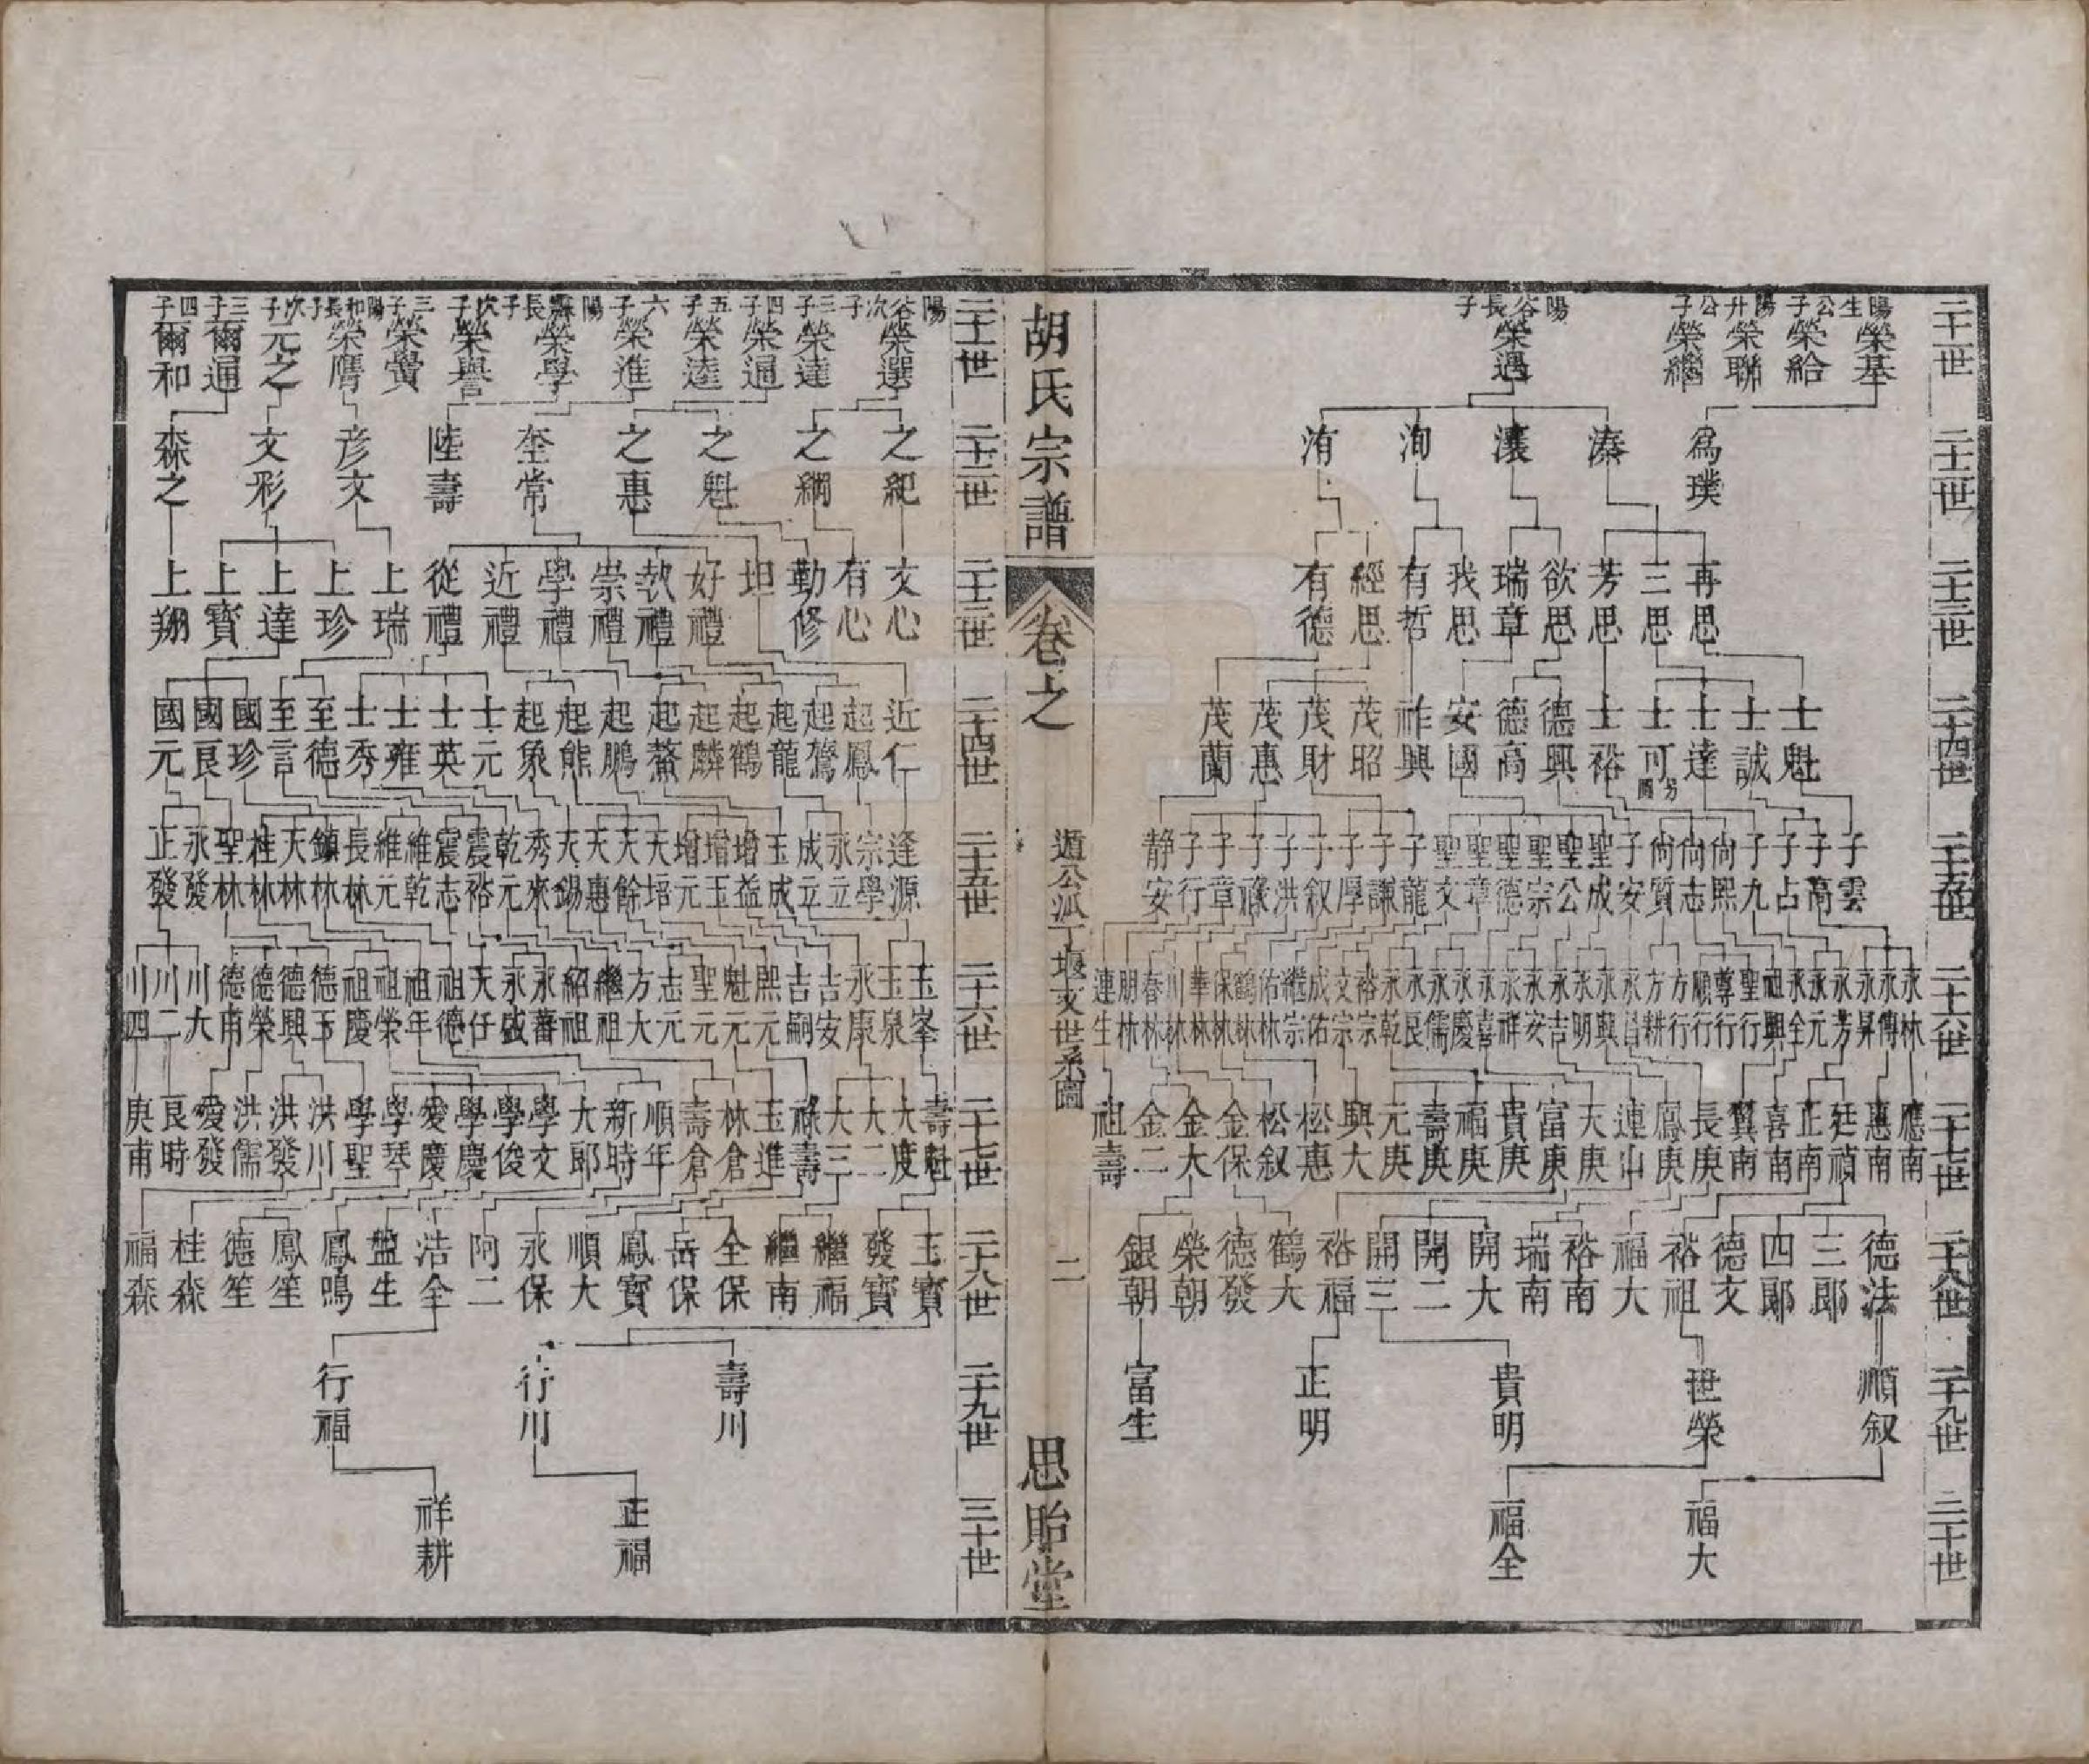 二十一世
陽生公子 榮基
榮給
陽升公子 榮聯
榮繼
陽谷長子 榮遇
二十二世
為璞
溱
瀼
洵
洧
二十三世
再思
三思
芳思
欲思
瑞章
我思
有哲
經思
有德
二十四世
士魁
士誠
士達
士可
士裕
德興
德高
安國
祚興
茂昭
茂財
茂惠
茂蘭
二十五世
子雲
子高
子占
子九
尙熙
尙志
尙質
子安
聖成
聖公
聖宗
聖德
聖章
聖文
子龍
子謙
子厚
子叙
子洪
子祿
子章
子行
静安
二十六世
永林
永傳
永昇
永芳
永元
永全
祖興
聖行
尊行
順行
方行
方耕
永昌
永興
永明
永吉
永安
永祥
永喜
永慶
永儒
永良
永乾
裕宗
文宗
成佑
繼宗
佑林
鶴林
保林
華林
川林
春林
朋林
連生
二十七世
應南
惠南
廷禎
正南
喜南
翼南
長庚
鳳庚
連山
天庚
富庚
貴庚
福庚
壽庚
元庚
興大
松惠
松叙
金保
金大
金二
祖壽
二十八世
德法
三郞
四郞
德文
裕祖
福大
裕南
瑞南
開大
開二
開三
裕福
鶴大
德發
榮朝
銀朝
二十九世
順叙
世榮
貴明
正明
富生
三十世
福大
福全
胡氏宗譜
卷之
遁公派丁堰文世系圖
二
思貽堂
二十一世
陽谷次子 榮選
三子 榮達
四子 榮逼
五子 榮逵
六子 榮進
陽舞長子 榮學
次子 榮譽
三子 榮黌
陽和長子 榮膺
次子 元之
三子 爾逼
四子 爾和
二十二世
之紀
之綱
之魁
之惠
奎常
陸壽
彦文
文彩
森之
二十三世
文心
有心
勤修
坦
好禮
執禮
崇禮
學禮
近禮
從禮
上瑞
上珍
上達
上寳
上翔
二十四世
近仁
起鳳
起鶩
起龍
起鶴
起麟
起鰲
起鵬
起熊
起象
士元
士英
士雍
士秀
至德
至言
國珍
國良
國元
二十五世
逢源
宗學
永立
成立
玉成
增益
增玉
增元
天培
天餘
天惠
天錫
秀來
乾元
震裕
震志
維乾
維元
長林
鎮林
天林
桂林
聖林
永發
正發
二十六世
玉峯
玉泉
永康
吉安
吉嗣
熙元
魁元
聖元
志元
方大
繼祖
紹祖
永蕃
永盛
天任
祖德
祖年
祖榮
祖慶
德玉
德興
德榮
德甫
川大
川二
川四
二十七世
壽魁
大度
大二
大三
祿壽
玉進
林倉
壽倉
順年
新時
大郞
學文
學俊
學慶
愛慶
學琴
學聖
洪川
洪發
洪儒
愛發
良時
庚甫
二十八世
玉寳
發寳
繼福
繼南
全保
岳保
鳳寳
順大
永保
阿二
浩全
盤生
鳳鳴
鳳笙
德笙
桂森
福森
二十九世
壽川
行川
行福
三十世
正福
祥耕